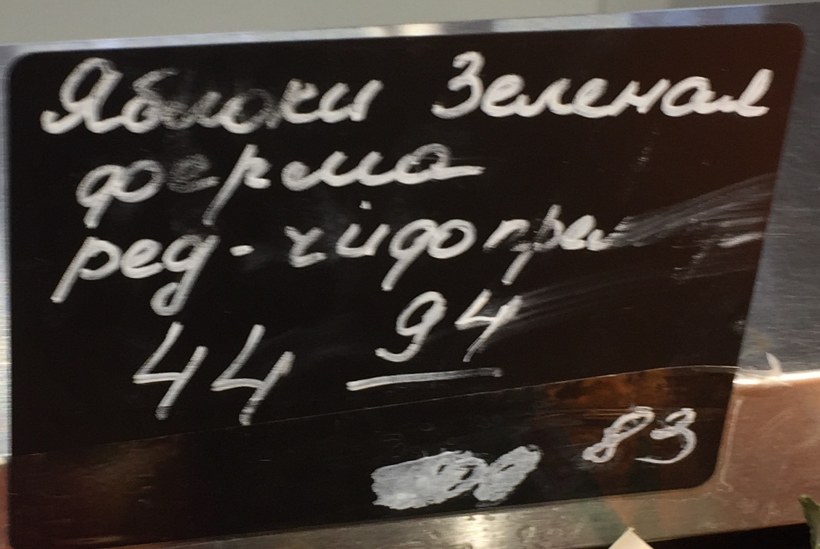 Яблоки Зеленая
ферма
ред-чифорпрел
44 94
83